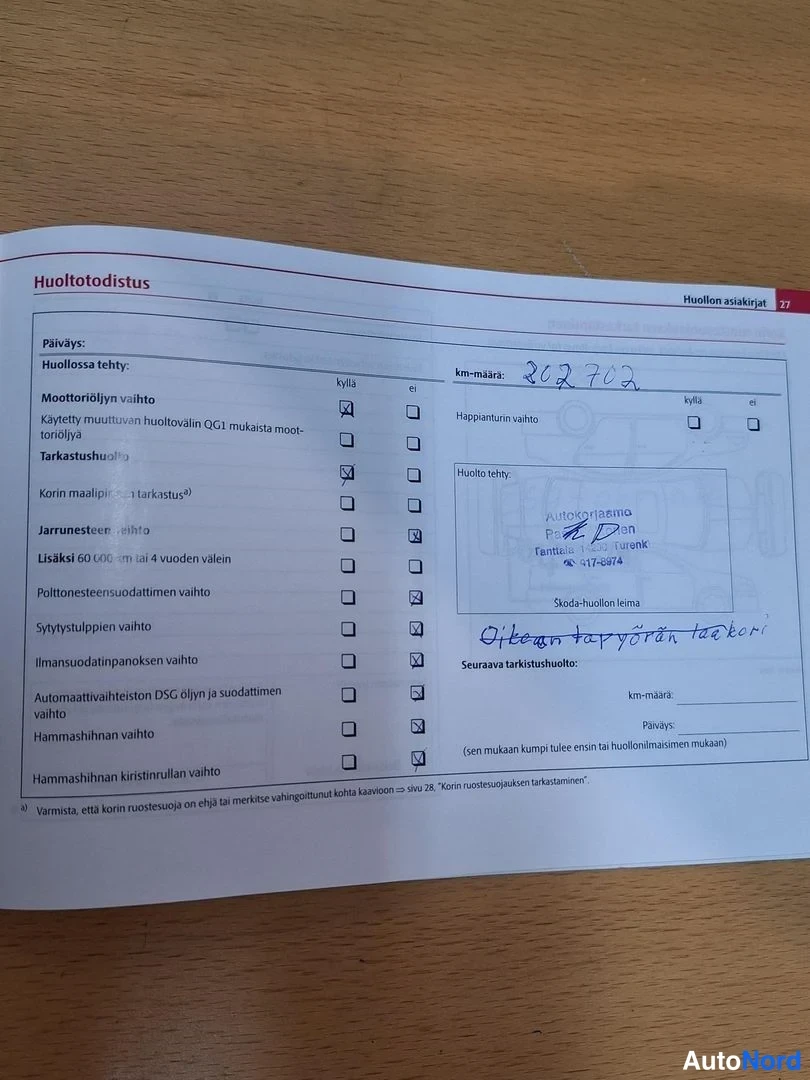 Huoltotodistus
Huollon asiakirjat 27
Päiväys:
Huollossa tehty:
kyllä ei
Moottoriöljyn vaihto
Käytetty muuttuvan huoltovälin QG1 mukaista moot-
toriöljyä
Tarkastushuolto
Korin maalipinnan tarkastusa)
Jarrunesteen vaihto
Lisäksi 60 000 km tai 4 vuoden välein
Polttonesteensuodattimen vaihto
Sytytystulppien vaihto
Ilmansuodatinpanoksen vaihto
Automaattivaihteiston DSG öljyn ja suodattimen
vaihto
Hammashihnan vaihto
Hammashihnan kiristinrullan vaihto
km-määrä: 202 702
kyllä ei
Happianturin vaihto
Huolto tehty:
Autokorjaamo
Tanttala Turenki
☎ 417-8974
Škoda-huollon leima
Oikean tapyörän laakeri
Seuraava tarkistushuolto:
km-määrä:
Päiväys:
(sen mukaan kumpi tulee ensin tai huollonilmaisimen mukaan)
a) Varmista, että korin ruostesuoja on ehjä tai merkitse vahingoittunut kohta kaavioon ⇒ sivu 28, "Korin ruostesuojauksen tarkastaminen".
AutoNord